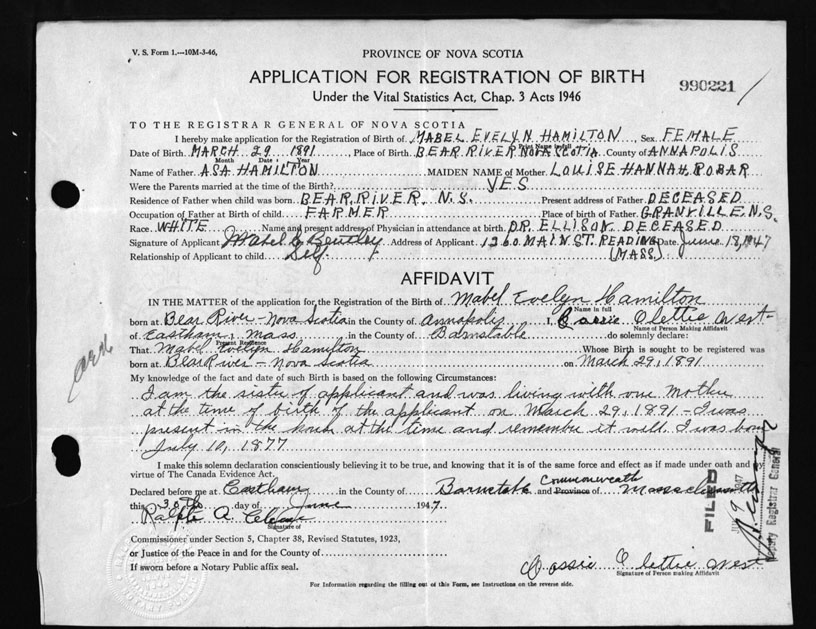 V. S. Form 1.---10M-3-46,
PROVINCE OF NOVA SCOTIA
APPLICATION FOR REGISTRATION OF BIRTH
990221
Under the Vital Statistics Act, Chap. 3 Acts 1946
TO THE REGISTRAR GENERAL OF NOVA SCOTIA
I hereby make application for the Registration of Birth of MABEL EVELYN HAMILTON, Sex FEMALE
Print Name in full
Date of Birth MARCH 29 1891, Place of Birth BEAR RIVER NOVA SCOTIA County of ANNAPOLIS
Month Date Year
Name of Father ASA HAMILTON MAIDEN NAME of Mother LOUISE HANNAH ROBAR
Were the Parents married at the time of the Birth? YES
Residence of Father when child was born BEAR RIVER, N.S. Present address of Father DECEASED
Occupation of Father at Birth of child FARMER Place of birth of Father GRANVILLE N.S.
Race WHITE Name and present address of Physician in attendance at birth DR. ELLISON DECEASED
Signature of Applicant Mabel E Bentley Address of Applicant 1260 MAIN ST. READING Date June 18, 1947
Relationship of Applicant to child Self. (MASS)
AFFIDAVIT
IN THE MATTER of the application for the Registration of the Birth of Mabel Evelyn Hamilton
Name in full
born at Bear River - Nova Scotia in the County of Annapolis, I, Cassie Olettie West
Name of Person Making Affidavit
of Eastham, Mass in the County of Barnstable do solemnly declare:
Present Residence
That Mabel Evelyn Hamilton Whose Birth is sought to be registered was
born at Bear River - Nova Scotia on March 29, 1891
My knowledge of the fact and date of such Birth is based on the following Circumstances:
I am the sister of applicant and was living with our Mother
at the time of birth of the applicant on March 29, 1891 - I was
present in the house at the time and remember it well. I was born
July 10, 1877
I make this solemn declaration conscientiously believing it to be true, and knowing that it is of the same force and effect as if made under oath and by
virtue of The Canada Evidence Act.
Commonwealth
Declared before me at Eastham in the County of Barnstable and Province of Massachusetts
this 30th day of June 1947
Ralph A.
Signature of
Commissioner under Section 5, Chapter 38, Revised Statutes, 1923,
or Justice of the Peace in and for the County of
If sworn before a Notary Public affix seal.
Cassie Olettie West
Signature of Person making Affidavit
For Information regarding the filling out of this Form, see Instructions on the reverse side.
FILED
9 1947
Deputy Registrar General
NOTARY PUBLIC